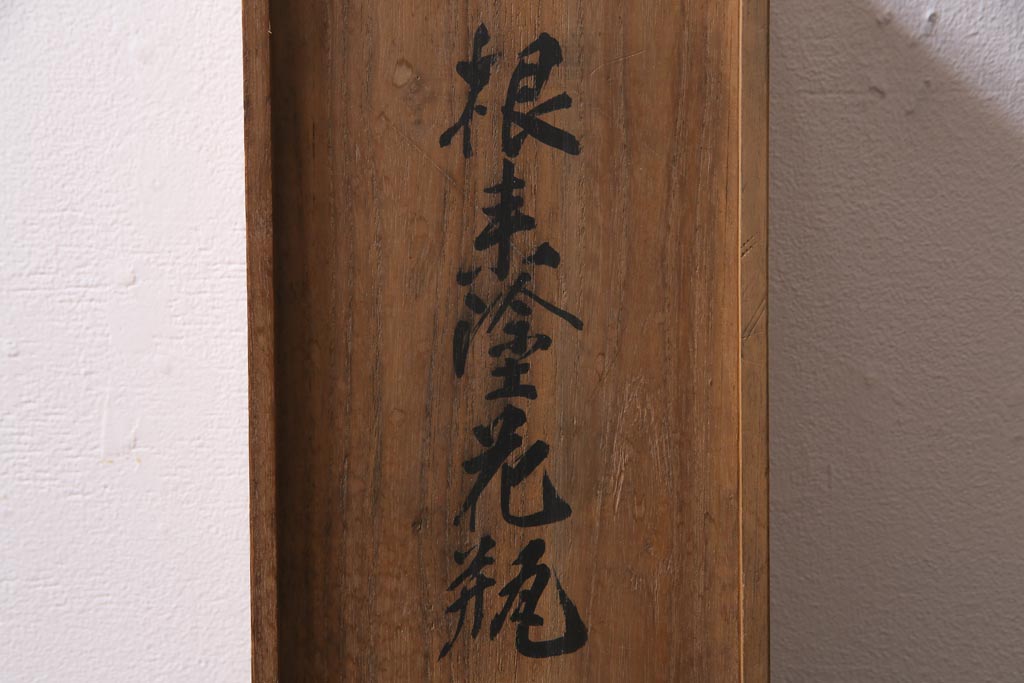 根来塗花瓶